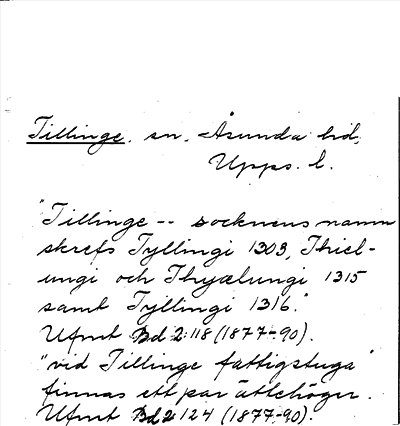 Tillinge. sn. Åsunda hd,
Upps. l.
"Tillinge -- socknens namn
skrefs Tyllingi 1303, Thiel-
ungi och Thyælungi 1315
samt Tyllingi 1316."
Ufmt Bd 2:118 (1877-90).
"vid Tillinge fattigstuga"
finnas ett par ättehögar.
Ufmt Bd 2 124 (1877-90).